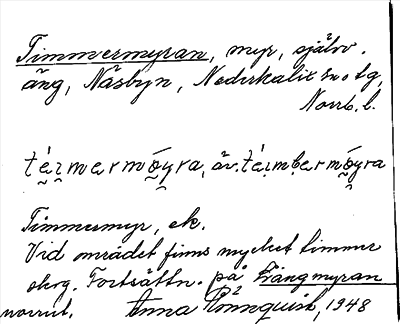 Timmermyran, myr, självv.
äng, Näsbyn, Nederkalix sn o tg,
Norrb. l.
téimermöyra, äv. téimbermöyra
Timmermyr, ek.
Vid området finns mycket timmer
skog. Fortsättn. på Långmyran
norrut. Anna Rönnquist, 1948
2